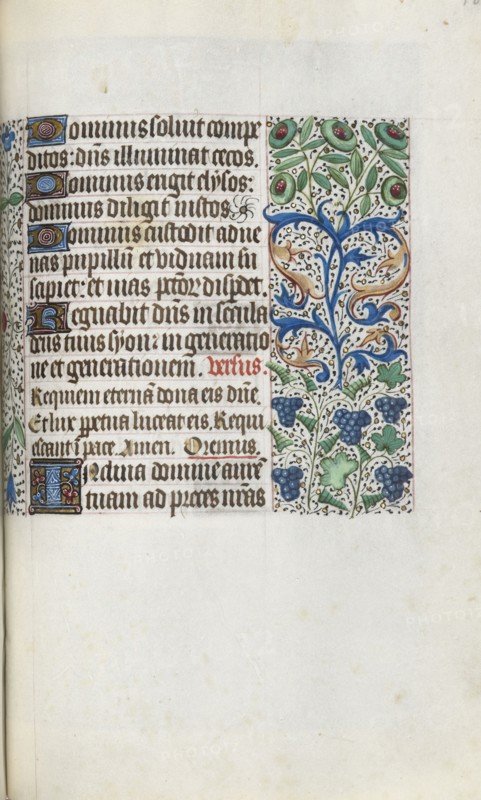 Dominus soluit compe
ditos: dñs illuminat cecos.
Dominus erigit elysos:
dominus diligit iustos
Dominus custodit adue
nas pupillũ et viduam su
scipiet: et uias pctoꝝ dispdet.
Regnabit dñs in secula
deus tuus syon: in generatio
ne et generationem. Versus.
Requiem eternã dona eis dñe.
Et lux ppetua luceat eis. Requi
escant ĩ pace. Amen. Oremus.
Inclina domine aurẽ
tuam ad preces nr̃as